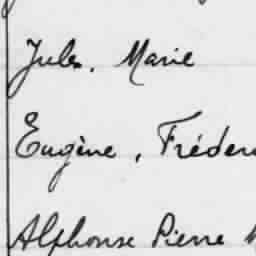 Jules, Marie
Eugène, Fréder
Alphonse Pierre